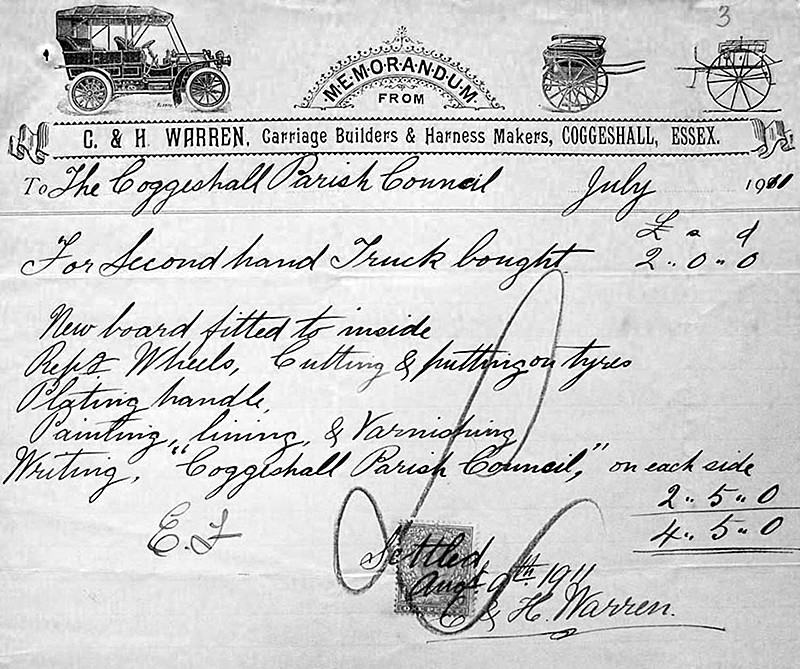 3
MEMORANDUM
FROM
C. & H. WARREN, Carriage Builders & Harness Makers, COGGESHALL, ESSEX.
To The Coggeshall Parish Council July 1911
£ s d
For Second hand Truck bought 2 " 0 " 0
New board fitted to inside
Repg Wheels, Cutting & putting on tyres
Plating handle,
Painting, lining, & Varnishing
Writing, "Coggeshall Parish Council," on each side
2 " 5 " 0
4 " 5 " 0
Settled
Augt 9th 1911
C & H. Warren.